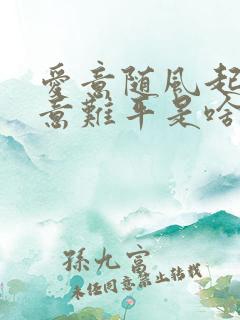 愛意随風起
意難平是啥
孫九富
未经同意禁止转载